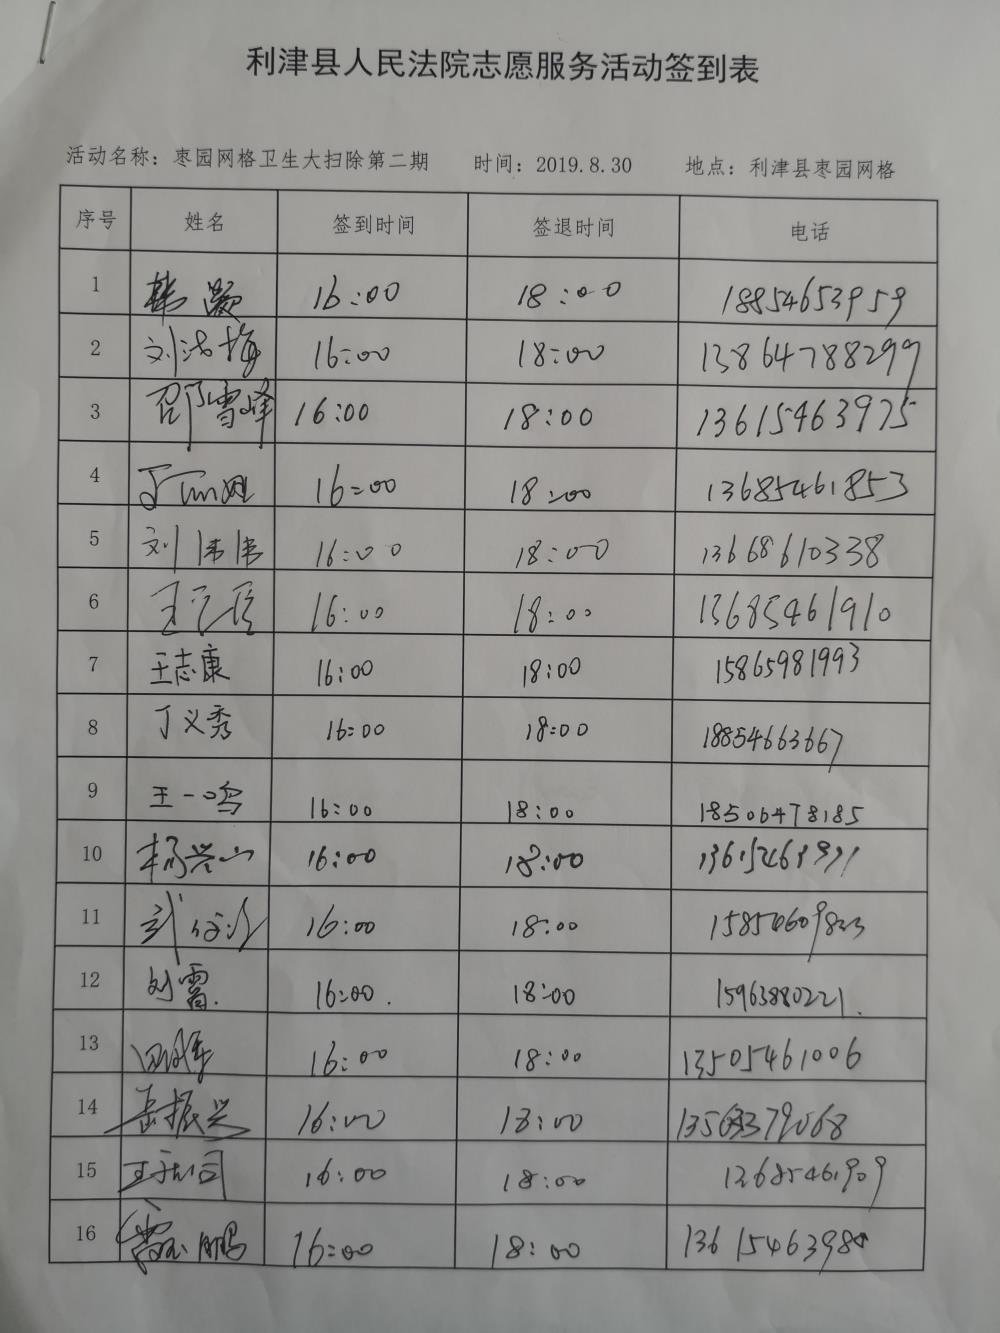 利津县人民法院志愿服务活动签到表
活动名称：枣园网格卫生大扫除第二期 时间：2019.8.30 地点：利津县枣园网格
序号 姓名 签到时间 签退时间 电话
1 韩 16:00 18:00 18854653959
2 刘洪梅 16:00 18:00 13864788299
3 邵雪峰 16:00 18:00 13615463975
4 16:00 18:00 13685461853
5 刘伟伟 16:00 18:00 13668610338
6 王 16:00 18:00 13685461910
7 王志康 16:00 18:00 15865981993
8 丁义秀 16:00 18:00 18854663667
9 王一鸣 16:00 18:00 18506478185
10 杨兴山 16:00 18:00
11 武 16:00 18:00
12 刘霄. 16:00. 18:00 15963880221.
13 16:00 18:00 13505461006
14 岳振兴 16:00 18:00
15 16:00 18:00
16 鹏 16:00 18:00